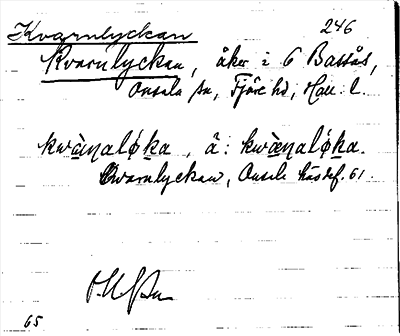 Kvarnlyckan 246
Kvarnlyckan, åker i 6 Bassås,
Onsala sn, Fjäre hd, Hall. l.
kwànaløka, ä: kwànaløka.
Qvarnlyckan, Onsala husdef. 61.
65